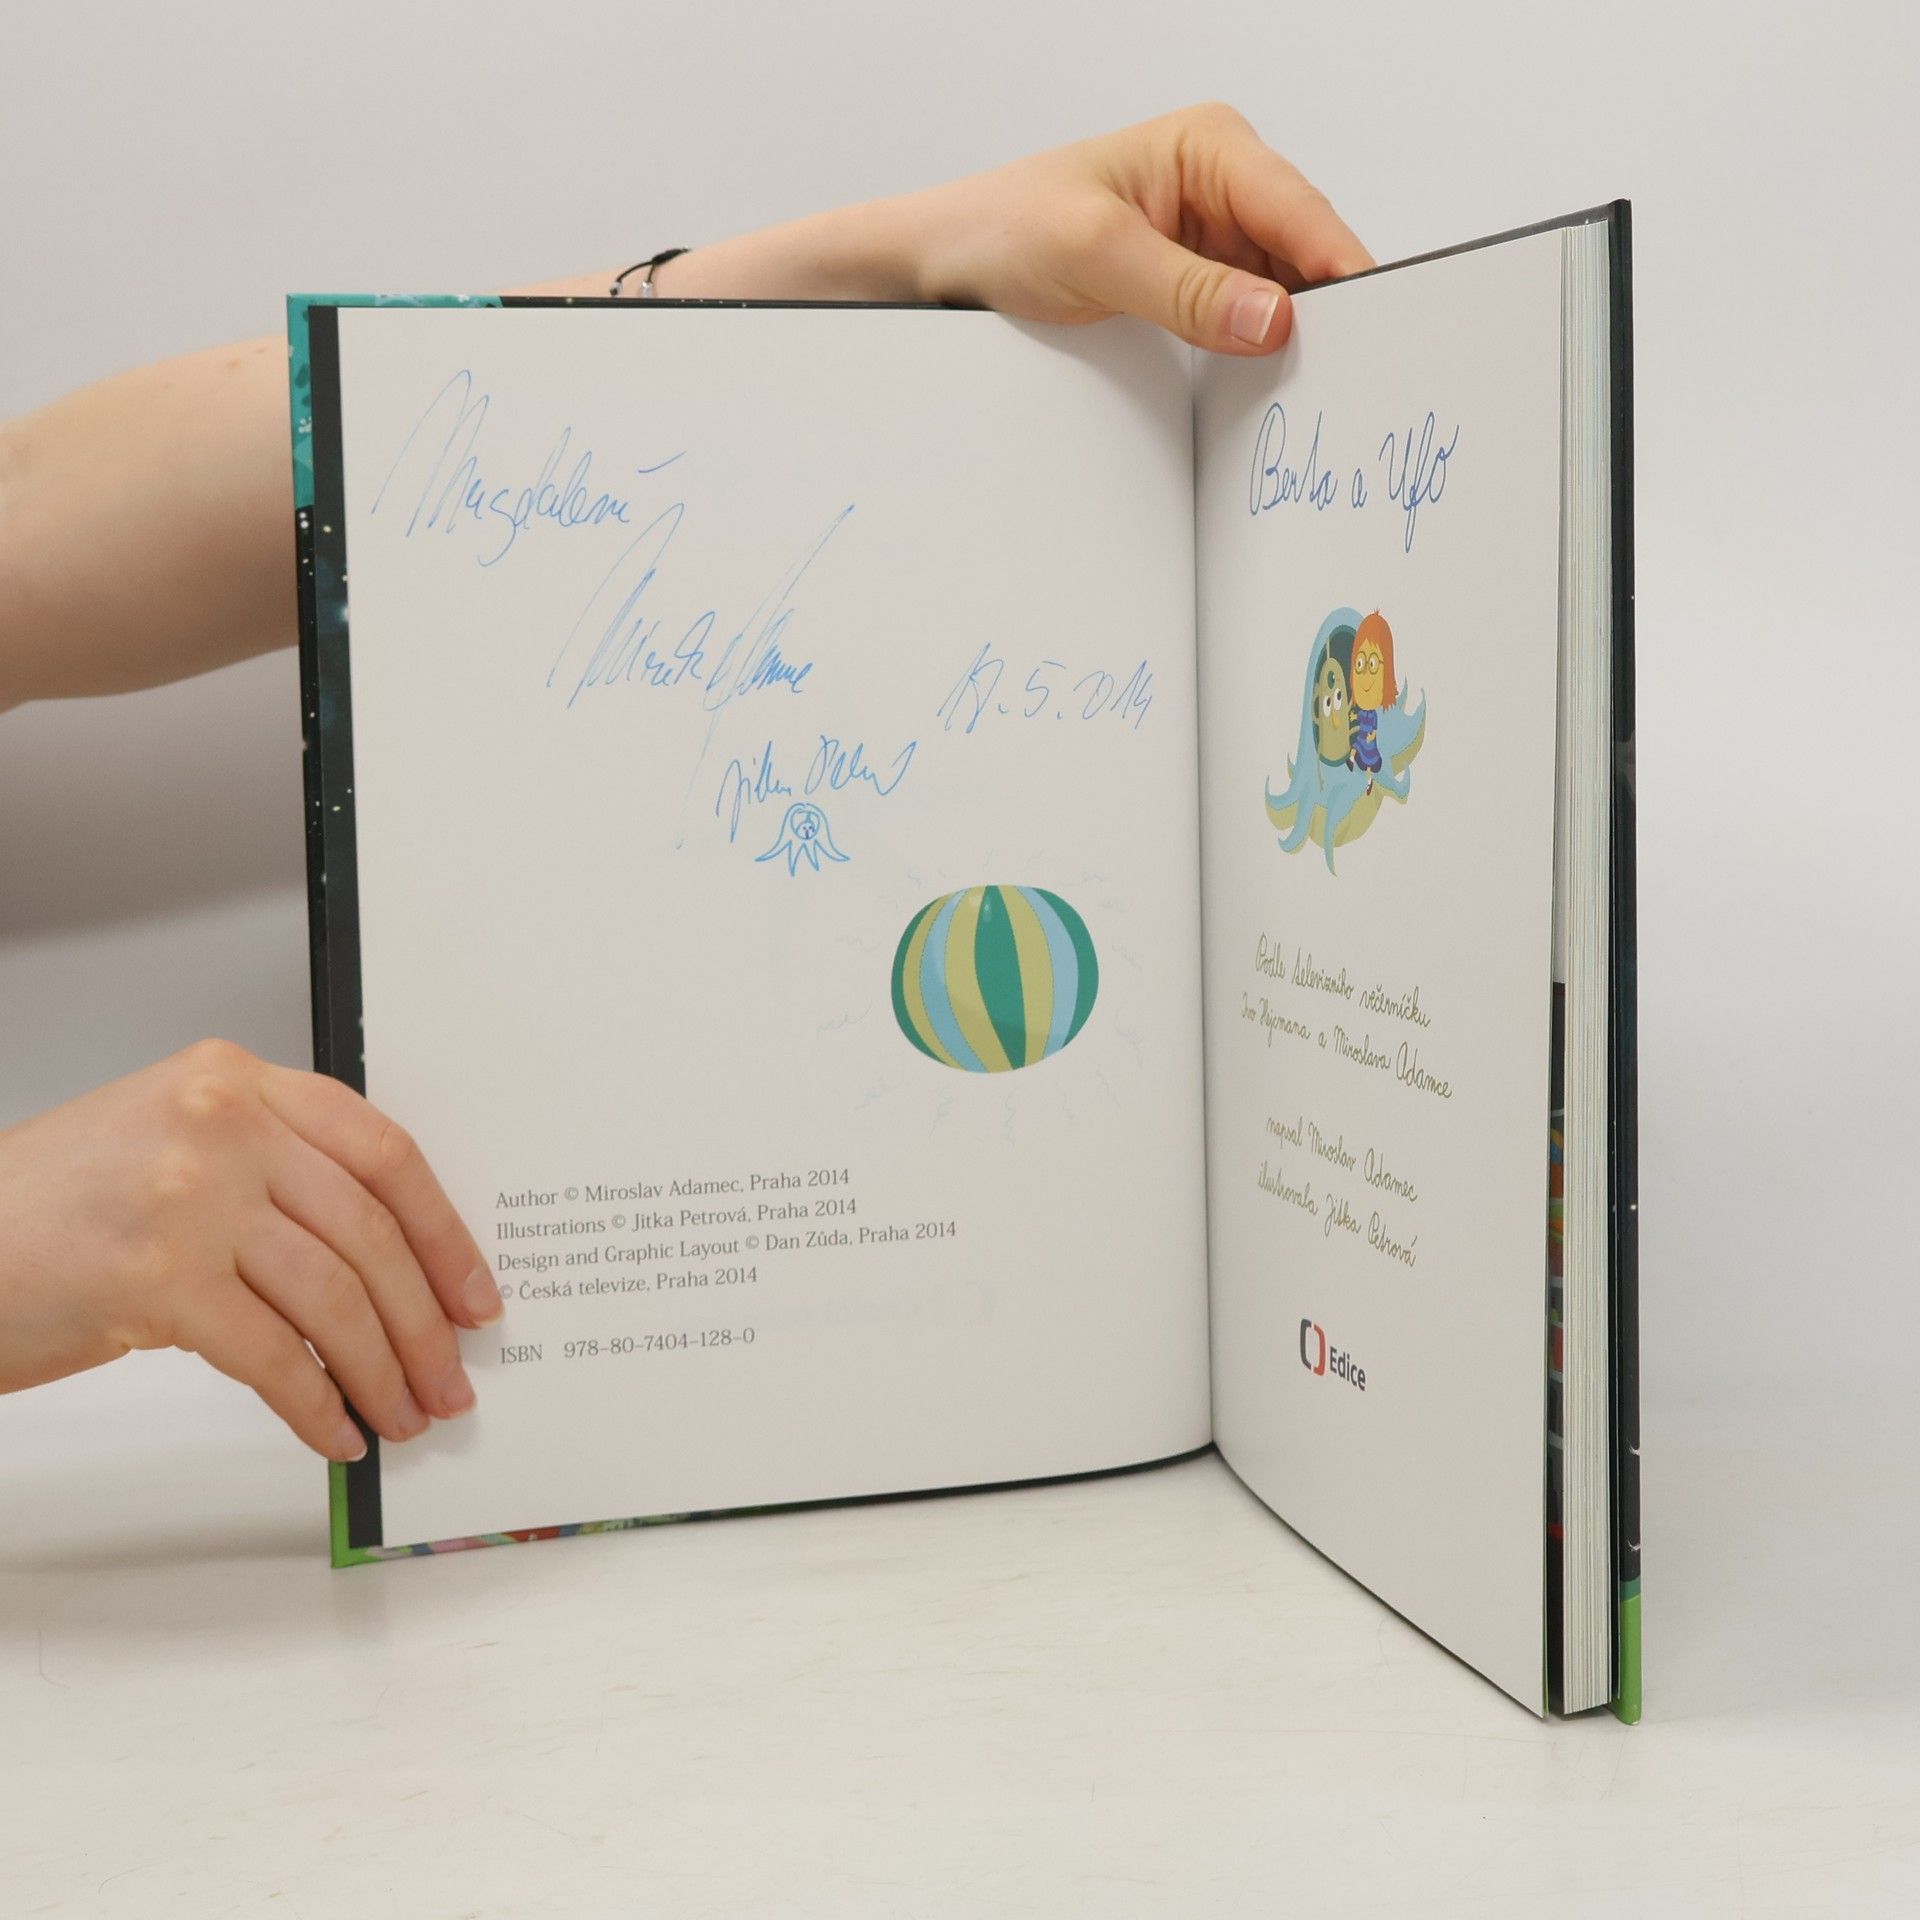 Magdaleně
Mirek Adamec
5.2014
Jitka Petrová
Author © Miroslav Adamec, Praha 2014
Illustrations © Jitka Petrová, Praha 2014
Design and Graphic Layout © Dan Zůda, Praha 2014
© Česká televize, Praha 2014
ISBN 978-80-7404-128-0
Berta a Ufo
Podle televizního večerníčku
Ivo Hejcmana a Miroslava Adamce
napsal Miroslav Adamec
ilustrovala Jitka Petrová
Edice